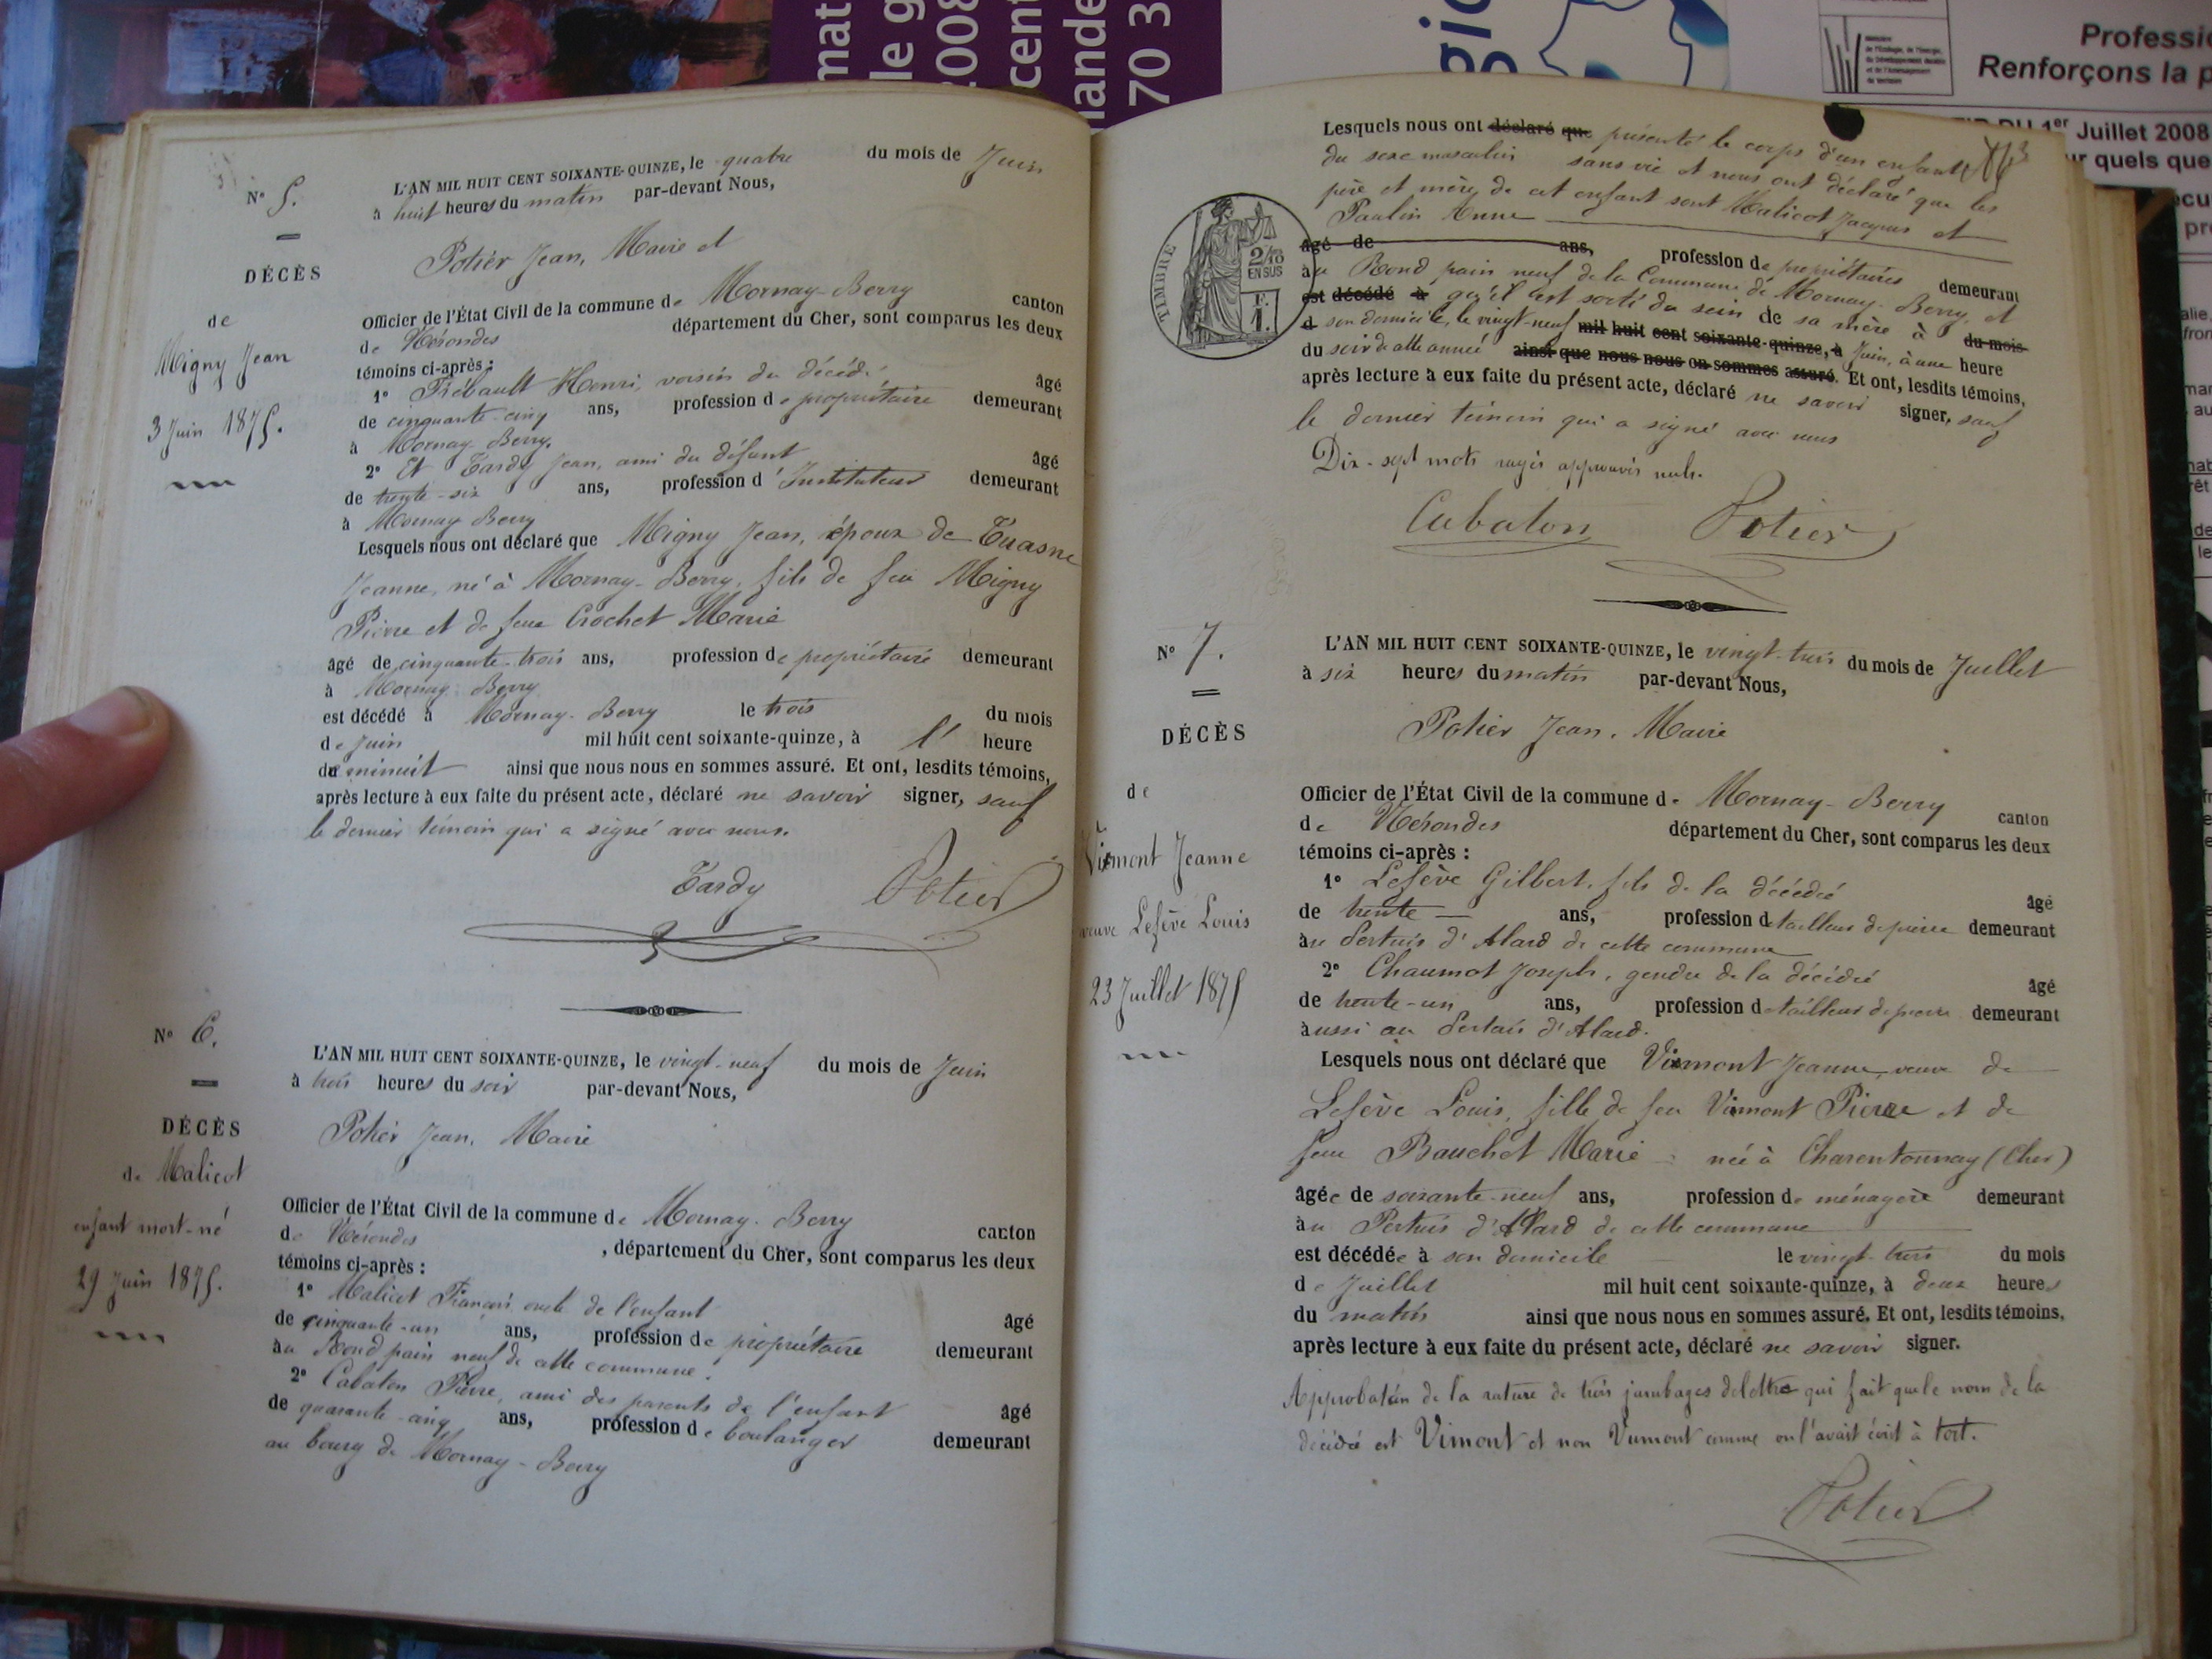 mat
le g
2008
cent
mande
70 3
gio
Ministère
de l'Ecologie, de l'Energie,
du Développement durable
et de l'Aménagement
du territoire
Professi
Renforçons la p
DU 1er Juillet 2008
ur quels que
N° 5.
DÉCÈS
de
Migny Jean
3 Juin 1875.
L'AN MIL HUIT CENT SOIXANTE-QUINZE, le quatre du mois de Juin
à huit heures du matin par-devant Nous,
Potier Jean, Maire et
Officier de l'État Civil de la commune de Mornay-Berry canton
de Nérondes département du Cher, sont comparus les deux
témoins ci-après :
1° Trébault Henri, voisin du décédé âgé
de cinquante-cinq ans, profession de propriétaire demeurant
à Mornay-Berry.
2° Et Tardy Jean, ami du défunt âgé
de trente-six ans, profession d'Instituteur demeurant
à Mornay-Berry
Lesquels nous ont déclaré que Migny Jean, époux de Tuasne
Jeanne, né à Mornay-Berry, fils de feu Migny
Pierre et de feue Crochet Marie
âgé de cinquante-trois ans, profession de propriétaire demeurant
à Mornay-Berry
est décédé à Mornay-Berry le trois du mois
de Juin mil huit cent soixante-quinze, à l' heure
de minuit ainsi que nous nous en sommes assuré. Et ont, lesdits témoins,
après lecture à eux faite du présent acte, déclaré ne savoir signer, sauf
le dernier témoin qui a signé avec nous.
Tardy Potier
N° 6.
DÉCÈS
de Malicot
enfant mort-né
29 Juin 1875.
L'AN MIL HUIT CENT SOIXANTE-QUINZE, le vingt-neuf du mois de Juin
à trois heures du soir par-devant Nous,
Potier Jean, Maire
Officier de l'État Civil de la commune de Mornay-Berry canton
de Nérondes , département du Cher, sont comparus les deux
témoins ci-après :
1° Malicot François, oncle de l'enfant âgé
de cinquante-un ans, profession de propriétaire demeurant
au Rond pain neuf de cette commune.
2° Cabaton Pierre, ami des parents de l'enfant âgé
de quarante-cinq ans, profession de boulanger demeurant
au bourg de Mornay-Berry
Lesquels nous ont déclaré que présenté le corps d'un enfant
du sexe masculin sans vie et nous ont déclaré que les
père et mère de cet enfant sont Malicot Jacques et
Paulin Anne
TIMBRE
2/10
EN SUS
F.
1.
âgé de ans, profession de propriétaires demeurant
au Rond pain neuf de la Commune de Mornay-Berry, et
est décédé à qu'il est sorti du sein de sa mère à du mois
d son domicile, le vingt-neuf mil huit cent soixante-quinze, à Juin, à une heure
du soir de cette année ainsi que nous nous en sommes assuré. Et ont, lesdits témoins,
après lecture à eux faite du présent acte, déclaré ne savoir signer, sauf
le dernier témoin qui a signé avec nous
Dix-sept mots rayés approuvés nuls.
Cabaton Potier
N° 7.
DÉCÈS
de
Vimont Jeanne
veuve Lefève Louis
23 Juillet 1875
L'AN MIL HUIT CENT SOIXANTE-QUINZE, le vingt-trois du mois de Juillet
à six heures du matin par-devant Nous,
Potier Jean, Maire
Officier de l'État Civil de la commune de Mornay-Berry canton
de Nérondes département du Cher, sont comparus les deux
témoins ci-après :
1° Lefève Gilbert, fils de la décédée âgé
de trente ans, profession de tailleur de pierre demeurant
au Pertuis d'Alard de cette commune
2° Chaumot Joseph, gendre de la décédée âgé
de trente-un ans, profession de tailleur de pierre demeurant
aussi au Pertuis d'Alard.
Lesquels nous ont déclaré que Vimont Jeanne, veuve de
Lefève Louis, fille de feu Vimont Pierre et de
feue Bauchet Marie née à Charentonnay (Cher)
âgée de soixante-neuf ans, profession de ménagère demeurant
au Pertuis d'Alard de cette commune
est décédée à son domicile le vingt-trois du mois
de Juillet mil huit cent soixante-quinze, à deux heures
du matin ainsi que nous nous en sommes assuré. Et ont, lesdits témoins,
après lecture à eux faite du présent acte, déclaré ne savoir signer.
Approbation de la rature de trois jambages de lettre qui fait que le nom de la
décédée est Vimont et non Vumont comme on l'avait écrit à tort.
Potier